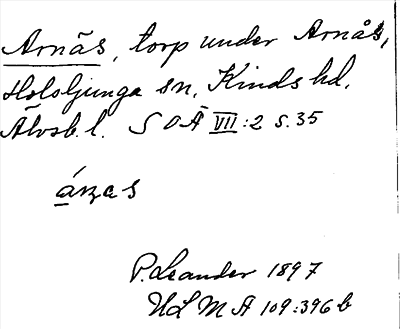 Arnäs, torp under Arnås,
Hololjunga sn, Kinds hd,
Älvsb. l. SOÄ VII:2 s. 35
P. Leander 1897
ULMA 109:396 b